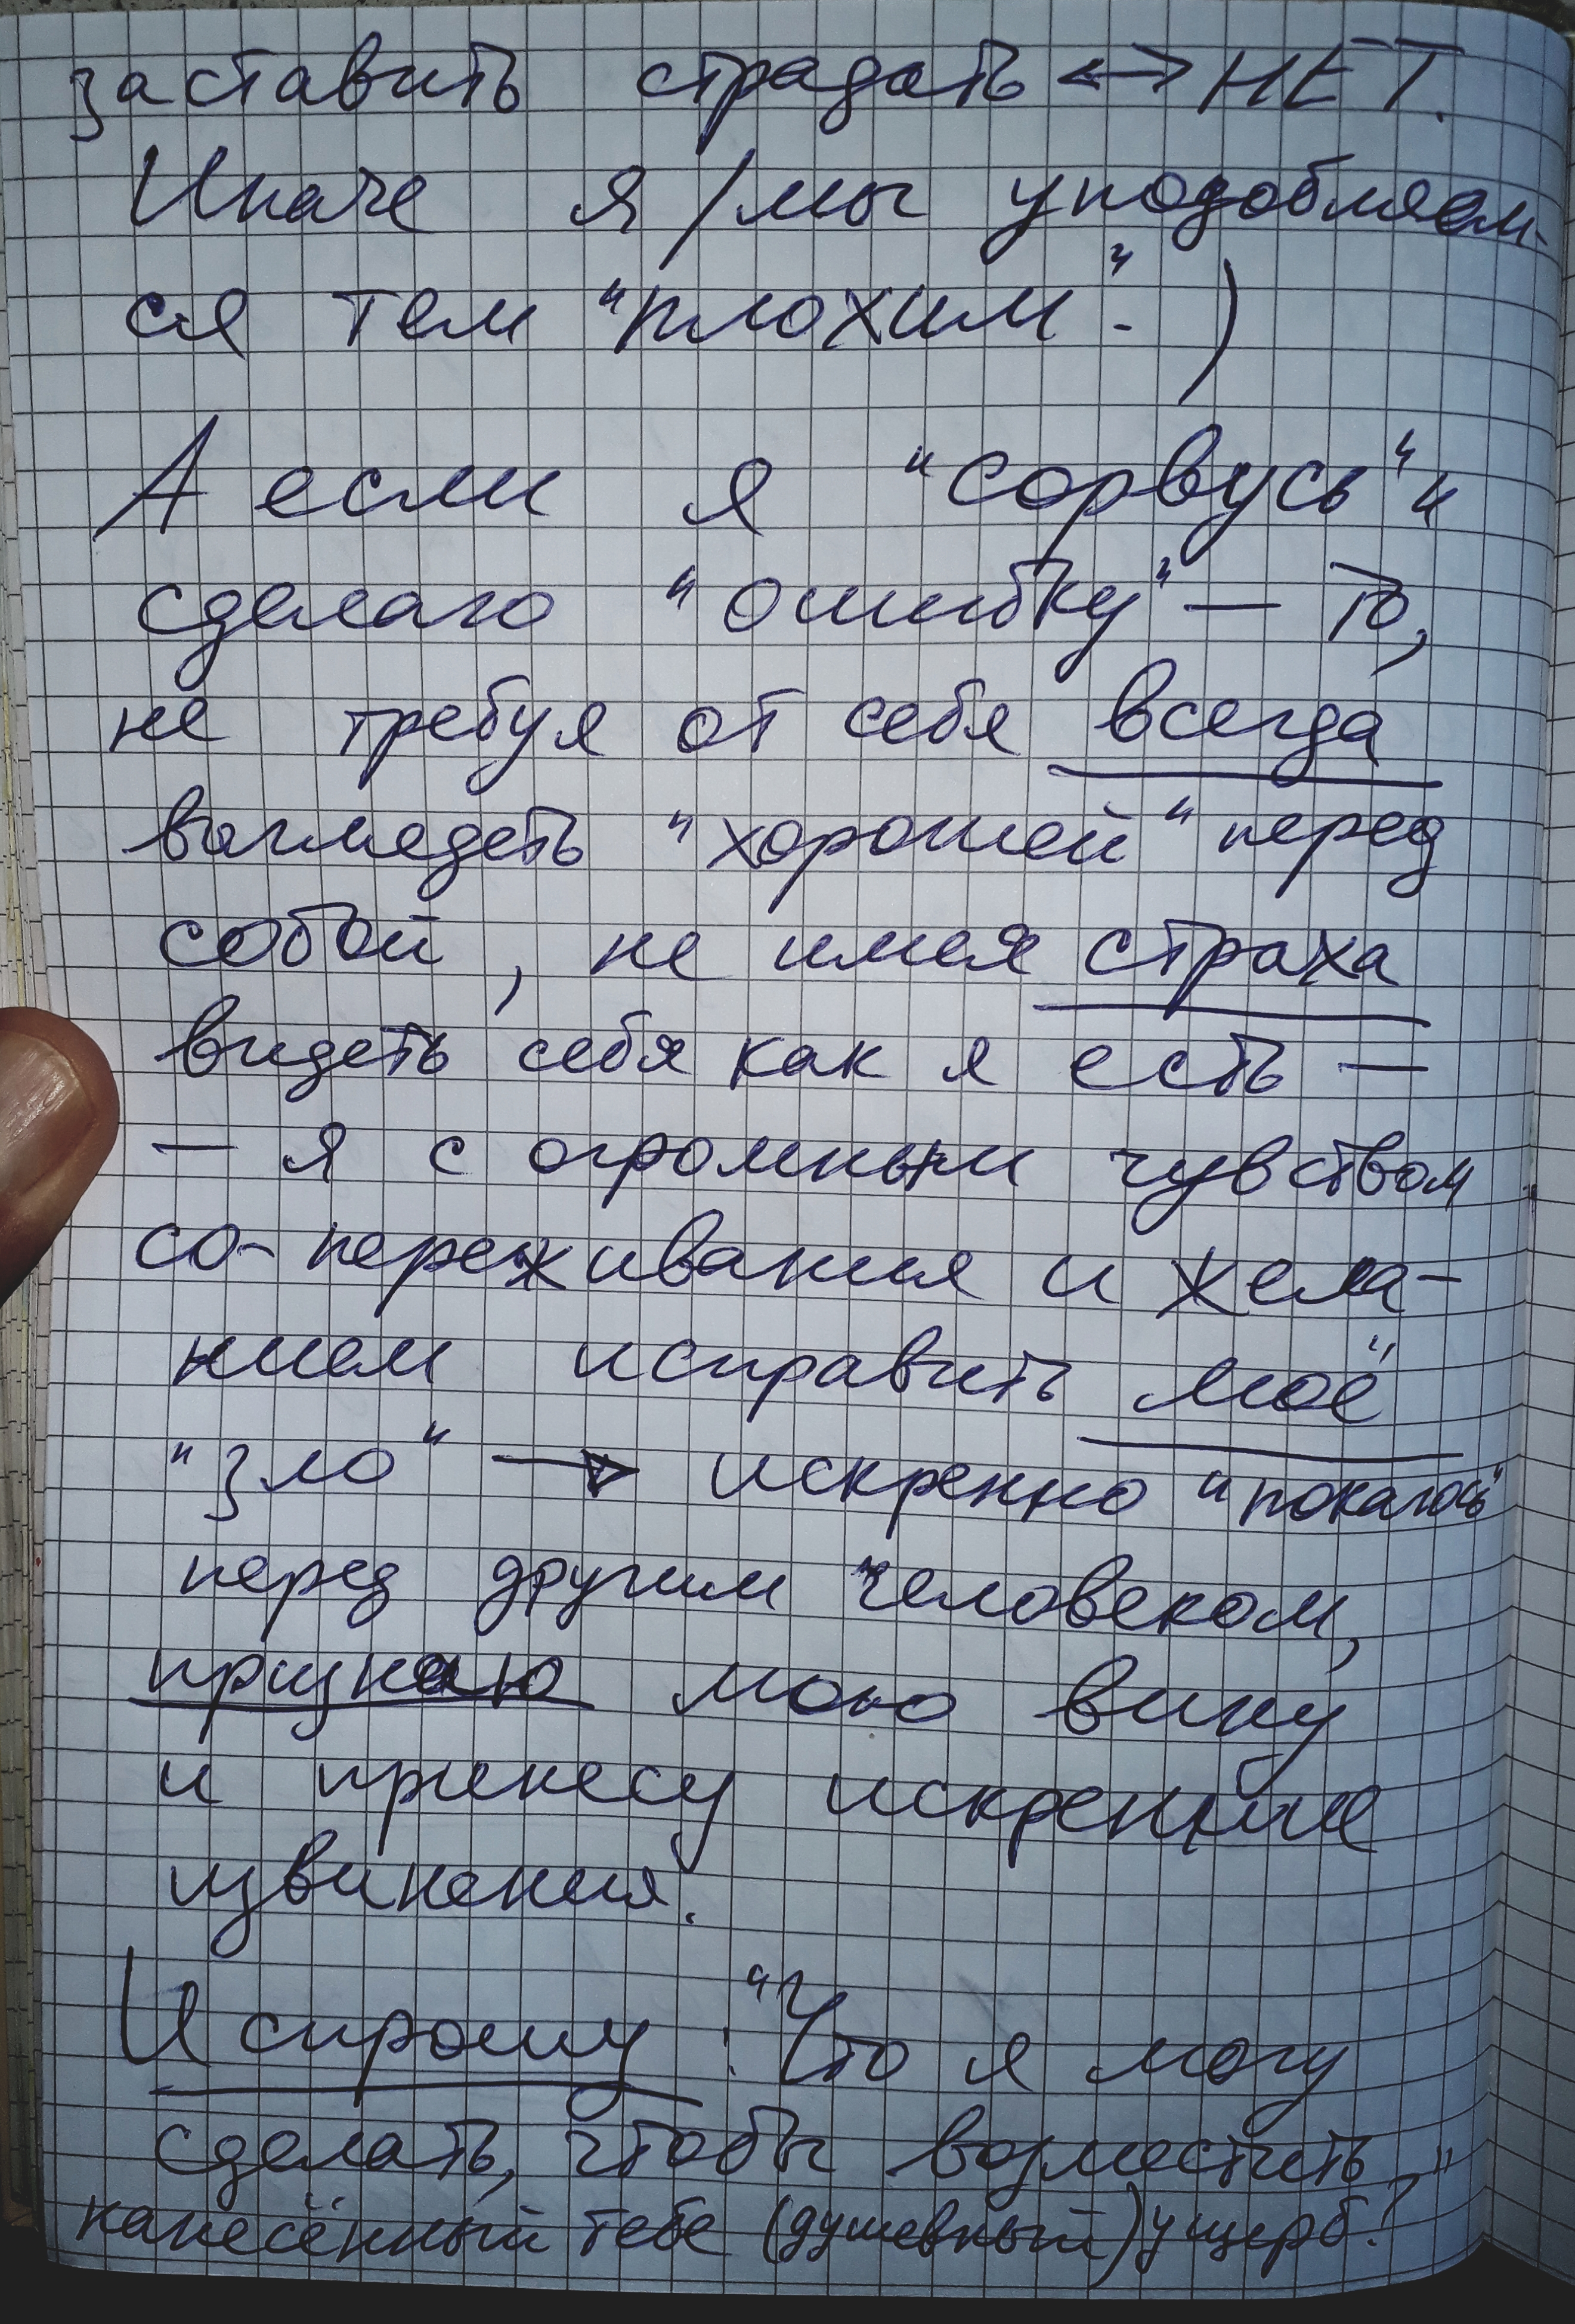 заставить страдать <-> НЕТ.
Иначе я/мы уподобляем-
ся тем "плохим". )
А если я "сорвусь" и
сделаю "ошибку" — то,
не требуя от себя всегда
выглядеть "хорошей" перед
собой, не имея страха
видеть себя как я есть —
— я с огромным чувством
со-переживания и жела-
нием исправить моё
"зло" → искренно "покаюсь"
перед другим человеком,
признаю мою вину
и принесу искренние
извинения.
И спрошу: "Что я могу
сделать, чтобы возместить
нанесённый тебе (душевный) ущерб?"